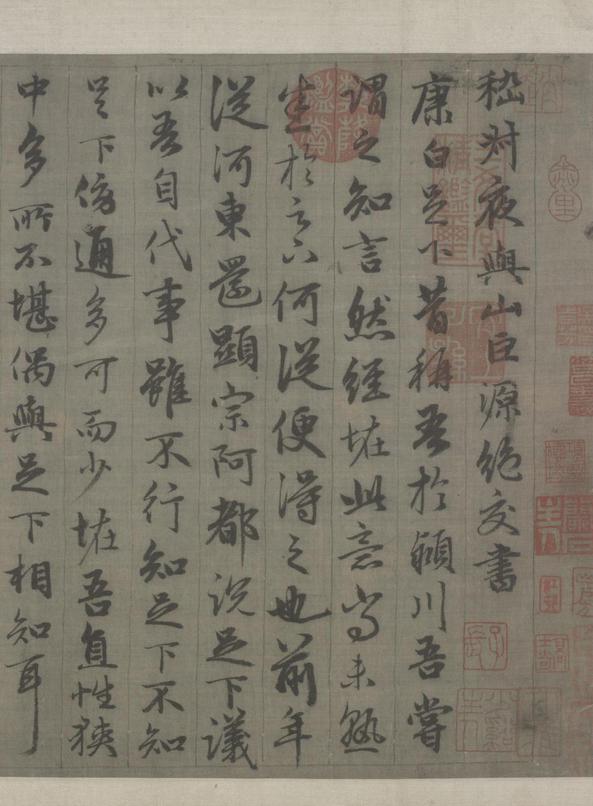 嵇叔夜與山巨源絕交書
康白足下昔稱吾於潁川吾嘗
謂之知言然經怪此意尚未熟
悉於足下何從便得之也前年
從河東還顯宗阿都說足下議
以吾自代事雖不行知足下不知
足下傍通多可而少怪吾直性狹
中多所不堪偶與足下相知耳